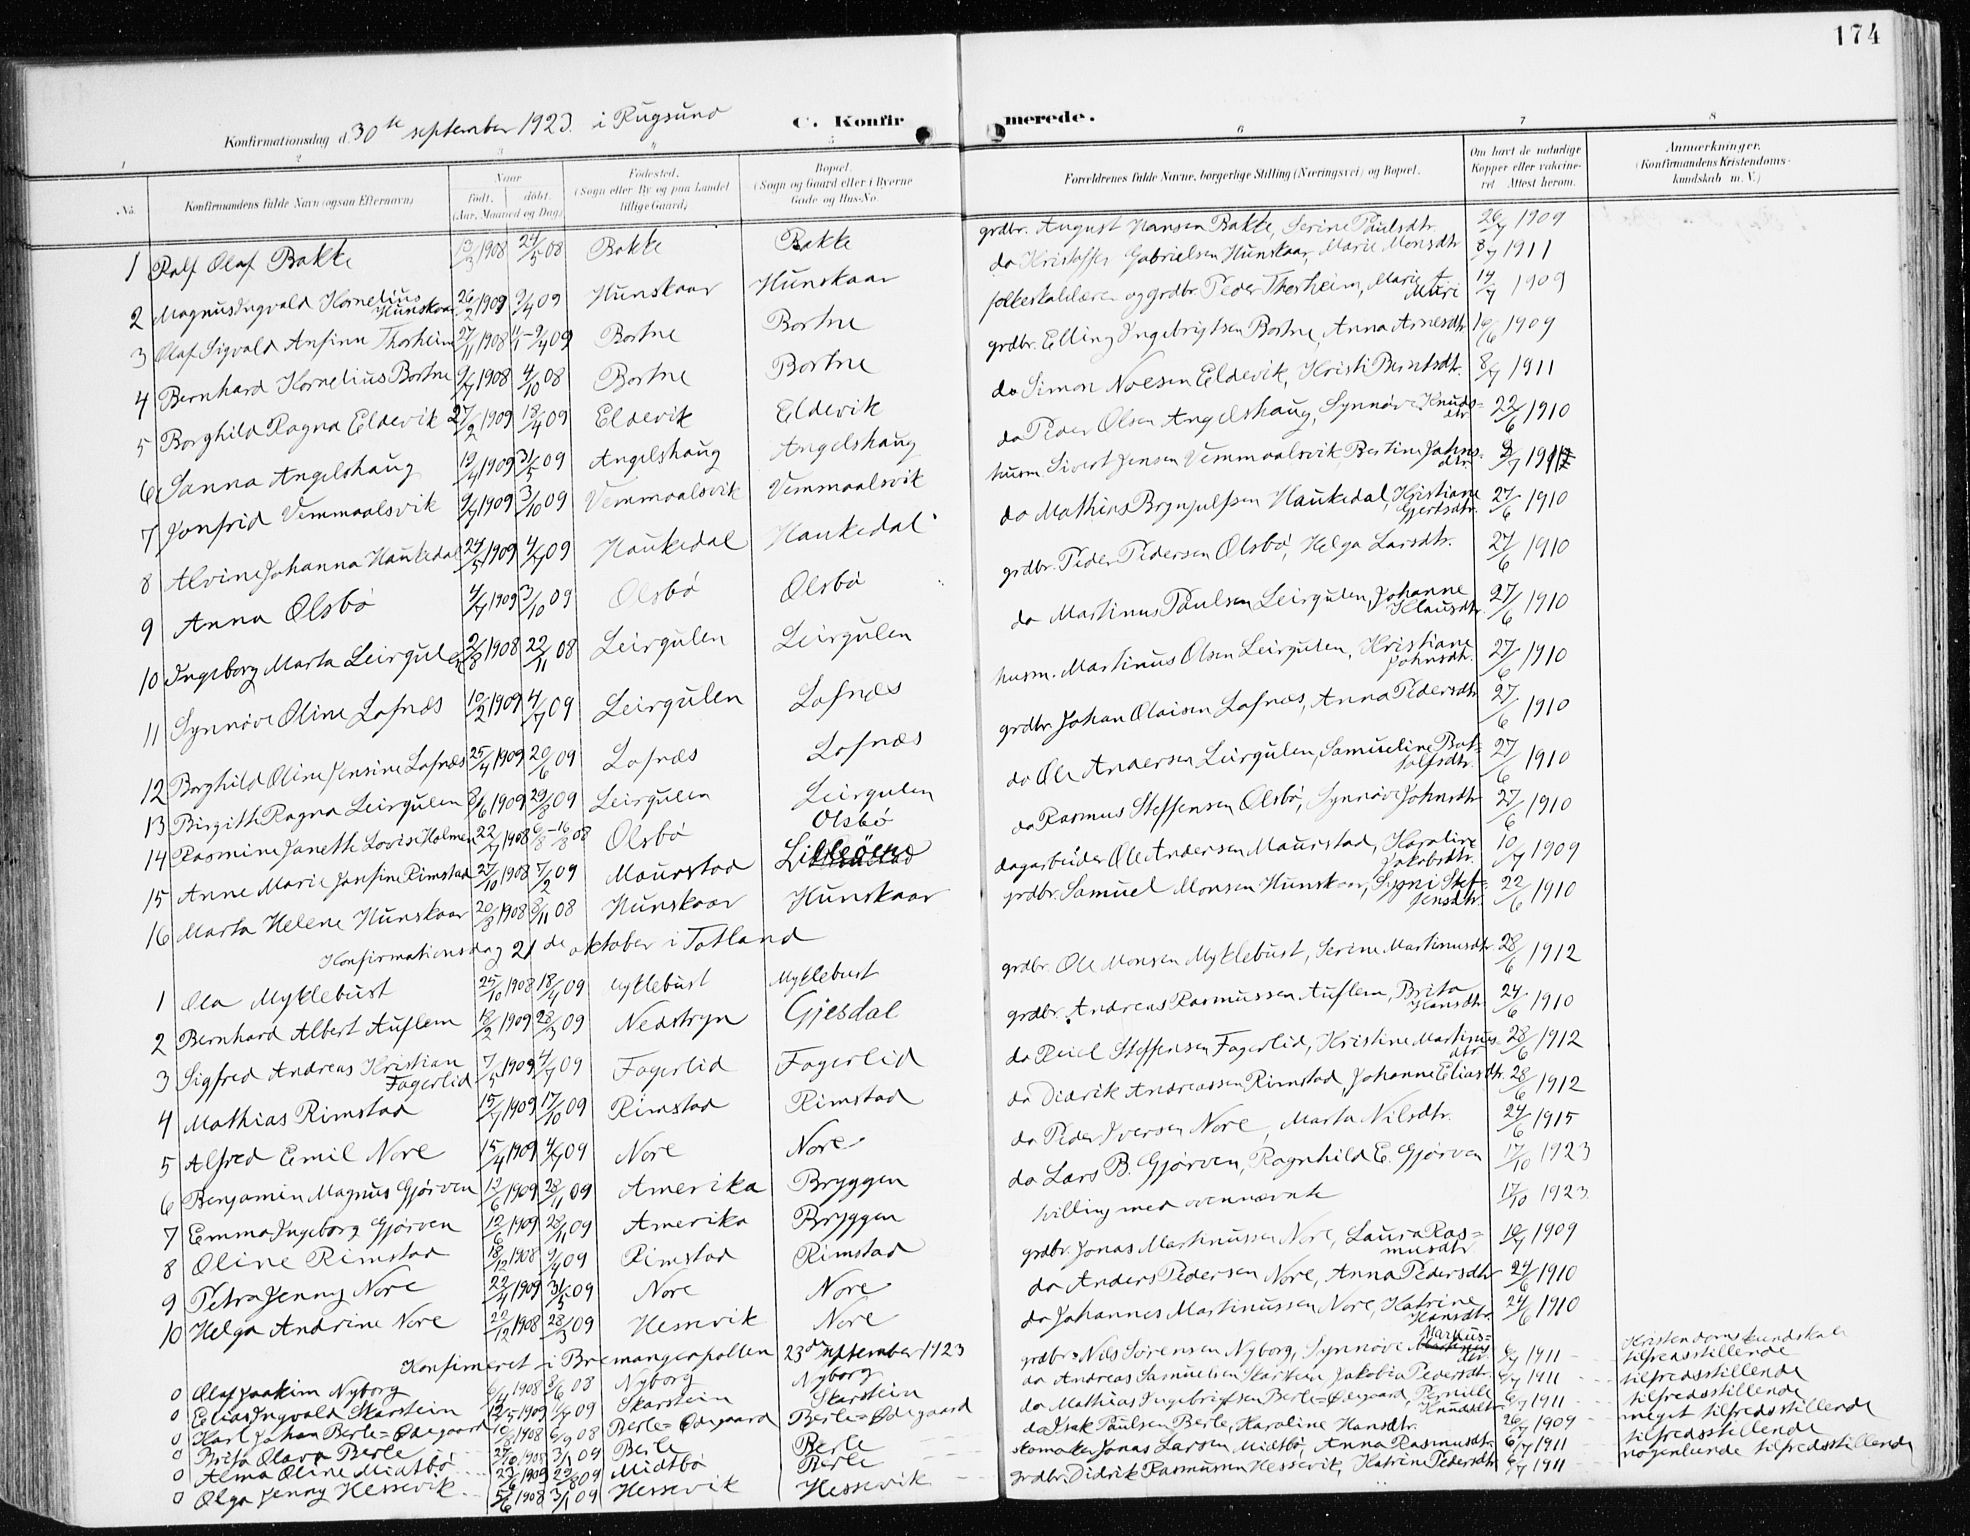 174
Konfirmationsdag d. 30te september 1923 i Rugsund
C. Konfirmerede.
1 2 3 4 5 6 7 8
No.
Konfirmandens fulde Navn (ogsaa Efternavn)
Naar født. døbt. (Aar, Maaned og Dag)
Fødested. (Sogn eller By og paa Landet tillige Gaard)
Bopæl. (Sogn og Gaard eller i Byerne Gade og Hus-No.
Forældrenes fulde Navne, borgerlige Stilling (Næringsvei) og Bopæl.
Om havt de naturlige Kopper eller vakcineret. Attest herom.
Anmærkninger. (Konfirmandens Kristendomskundskab m. V.)
1 Ralf Olaf Bakke 1908 24/5 08 Bakke Bakke grdbr. August Hansen Bakke, Serine Paulsdtr. 26/7 1909
2 Magnus Ingvald Kornelius Hunskaar 26/2 1909 9/4 09 Hunskaar Hunskaar do Kristoffer Gabrielsen Hunskaar, Marie Monsdtr 8/7 1911
3 Olaf Sigvald Anfinn Thorheim 27/11 1908 9/4 09 Bortne Bortne folkeskolelærer og grdbr. Peder Thorheim, Marie A. Muri 14/7 1909
4 Bernhard Kornelius Bortne 9/7 1908 4/10 08 Bortne Bortne grdbr. Elling Ingebrigtsen Bortne, Anna Arnesdtr 16/6 1909
5 Borghild Ragna Eldevik 27/2 1909 18/4 09 Eldevik Eldevik do Simon Noesen Eldevik, Kristi Berntsdt. 8/7 1911
6 Sanna Angelshaug 19/4 1909 31/5 09 Angelshaug Angelshaug do Peder Olsen Angelshaug, Synnøve Knudsdtr 22/6 1910
7 Jonfrid Vemmaalsvik 9/7 1909 3/10 09 Vemmaalsvik Vemmaalsvik husm. Sivert Jensen Vemmaalsvik, Bertine Johnsdtr.
8 Alvine Johanna Haukedal 24/5 1909 4/7 09 Haukedal Haukedal do Mathias Brynjulfsen Haukedal, Kristiane Gjertsdtr. 27/6 1910
9 Anna Olsbø 4/7 1909 3/10 09 Olsbø Olsbø grdbr. Peder Pedersen Olsbø, Helga Larsdtr. 27/6 1910
10 Ingeborg Marta Leirgulen 2/8 1908 22/11 08 Leirgulen Leirgulen do Martinus Paulsen Leirgulen, Johanne Klausdtr. 27/6 1910
11 Synnøve Oline Lofnæs 10/2 1909 4/7 09 Leirgulen Lofnæs husm. Martinus Olsen Leirgulen, Kristiane Johnsdt. 27/6 1910
12 Borghild Oline Jensine Lofnæs 25/4 1909 20/6 09 Lofnæs Lofnæs grdbr. Johan Olaisen Lofnæs, Anna Pedersdtr 27/6 1910
13 Birgith Ragna Leirgulen 8/6 1909 29/8 09 Leirgulen Leirgulen do Ole Andersen Leirgulen, Samueline Botolfsdtr. 27/6 1910
14 Rasmine Janeth Lovise Holmen 22/7 1908 6/8-16/8 08 Olsbø Olsbø do Rasmus Steffensen Olsbø, Synnøve Johnsdtr 27/6 1910
15 Anne Marie Jonfine Rimstad 27/10 1908 7/2 09 Maurstad Lilleøen dagarbeider Ole Andersen Maurstad, Karoline Jakobsdtr. 10/7 1909
16 Marta Helene Hunskaar 20/8 1908 8/11 08 Hunskaar Hunskaar grdbr. Samuel Monsen Hunskaar, Signi Steffensdtr. 22/6 1910
Konfirmationsdag 21de oktober i Totland
1 Ola Myklebust 25/10 1908 18/4 09 Myklebust Myklebust grdbr. Ole Monsen Myklebust, Serine Martinusdtr 28/6 1912
2 Bernhard Albert Auflem 18/2 1909 28/3 09 Nedstryn Gjesdal grdbr. Andreas Rasmussen Auflem, Brita Hansdtr. 24/6 1910
3 Sigfred Andreas Kristian Fagerlid 7/5 1909 4/7 09 Fagerlid Fagerlid do Peiel Steffensen Fagerlid, Kristine Martinusdtr 28/6 1912
4 Mathias Rimstad 15/7 1909 17/10 09 Rimstad Rimstad do Didrik Andreassen Rimstad, Johanne Eliasdtr. 28/6 1912
5 Alfred Emil Nore 15/4 1909 4/7 09 Nore Nore do Peder Iversen Nore, Marta Nilsdtr. 24/6 1915
6 Benjamin Magnus Gjørven 12/6 1909 28/11 09 Amerika Bryggen do Lars B. Gjørven, Ragnhild E. Gjørven 17/10 1923
7 Emma Ingeborg Gjørven 12/6 1909 28/11 09 Amerika Bryggen tvilling med ovennævnte 17/10 1923.
8 Oline Rimstad 18/12 1908 9/4 09 Rimstad Rimstad grdbr. Jonas Martinussen Nore, Laura Rasmusdtr 1909
9 Petra Jenny Nore 22/4 1909 31/5 09 Nore Nore do Anders Pedersen Nore, Anna Pedersdtr 24/6 1910
10 Helga Andrine Nore 22/12 1908 28/3 09 Hessevik Nore do Johannes Martinussen Nore, Katrine Hansdtr. 24/6 1910
Konfirmeret i Bremangerpollen 23de september 1923
Kristendomskundskab
0 Olaf Joakim Nyborg 1908 8/6 08 Nyborg Nyborg grdbr. Nils Sørensen Nyborg, Synnøve Markusdtr 6/7 1911 tilfredsstillende
0 Elias Ingvald Skarstein 12/5 1909 09 Skarstein Skarstein do Andreas Samuelsen Skarstein, Jakobia Pedersdtr. 6/7 1911 tilfredsstillende
0 Karl Johan Berle=Ødegaard 1908 6/9 08 Berle=Ødegaard Berle=Ødegaard do Mathias Ingebrigtsen Berle=Ødegaard, Pernille Knudsdtr 6/7 1911 tilfredsstillende
0 Brita Olava Berle 1908 3/1 09 Berle Berle do Isak Paulsen Berle, Karoline Hansdtr. 26/7 1909 meget tilfredsstillende
0 Alma Oline Midtbø 1909 22/8 09 Midtbø Berle skomaker Jonas Larsen Midtbø, Anna Rasmusdtr. 6/7 1911 tilfredsstillende
0 Olga Jenny Hessevik 5/6 1908 3/1 09 Hessevik Hessevik grdbr. Didrik Rasmussen Hessevik, Katrine Pedersdtr 6/7 1911 nogenlunde tilfredsstillende